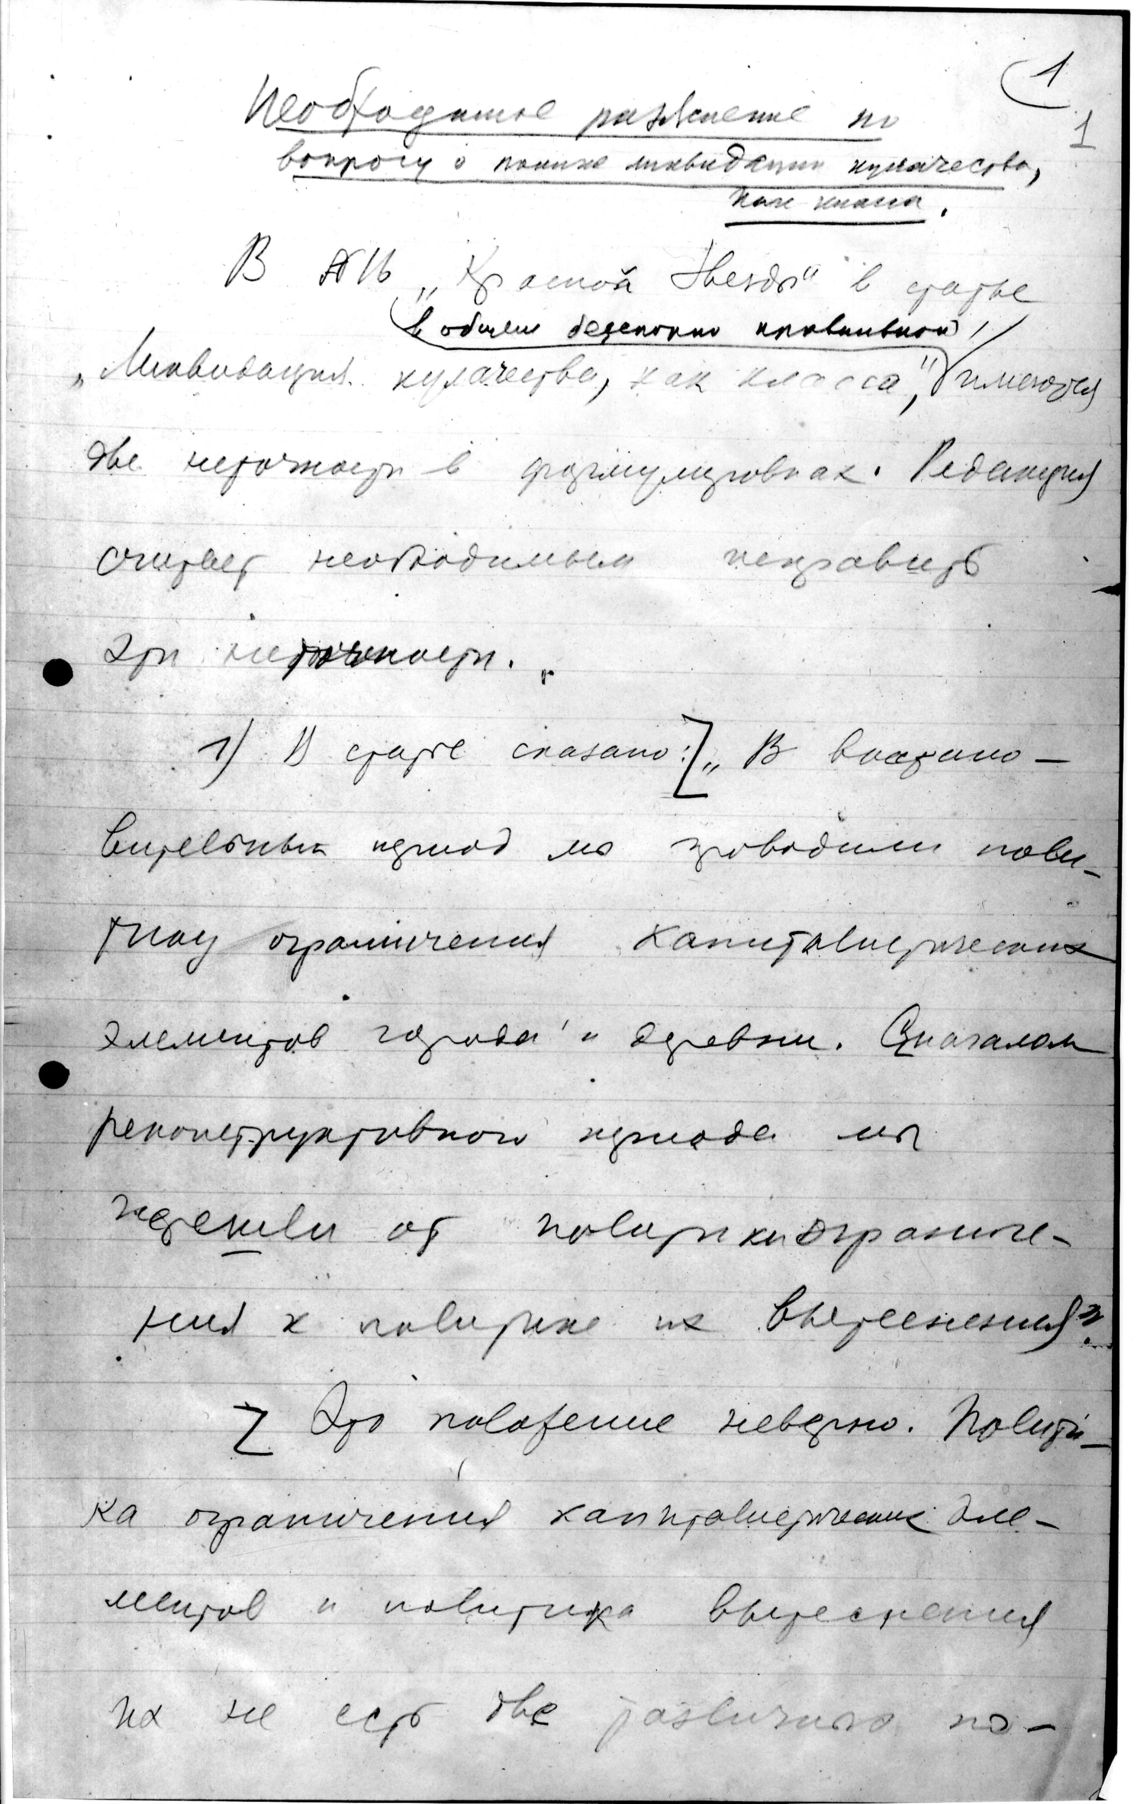 1
1
Необходимое разъяснение по
вопросу о политике ликвидации кулачества,
как класса.
В №16 „Красной Звезды" в статье
(в общем безусловно правильной)
„Ликвидация кулачества, как класса", имеются
две неточности в формулировках. Редакция
считает необходимым исправить
эти неточности.
1) В статье сказано: „В восстано-
вительный период мы проводили поли-
тику ограничения капиталистических
элементов города и деревни. С началом
реконструктивного периода мы
перешли от политики ограниче-
ния к политике их вытеснения".
Это положение неверно. Полити-
ка ограничения капиталистических эле-
ментов и политика вытеснения
их не есть две различных по-